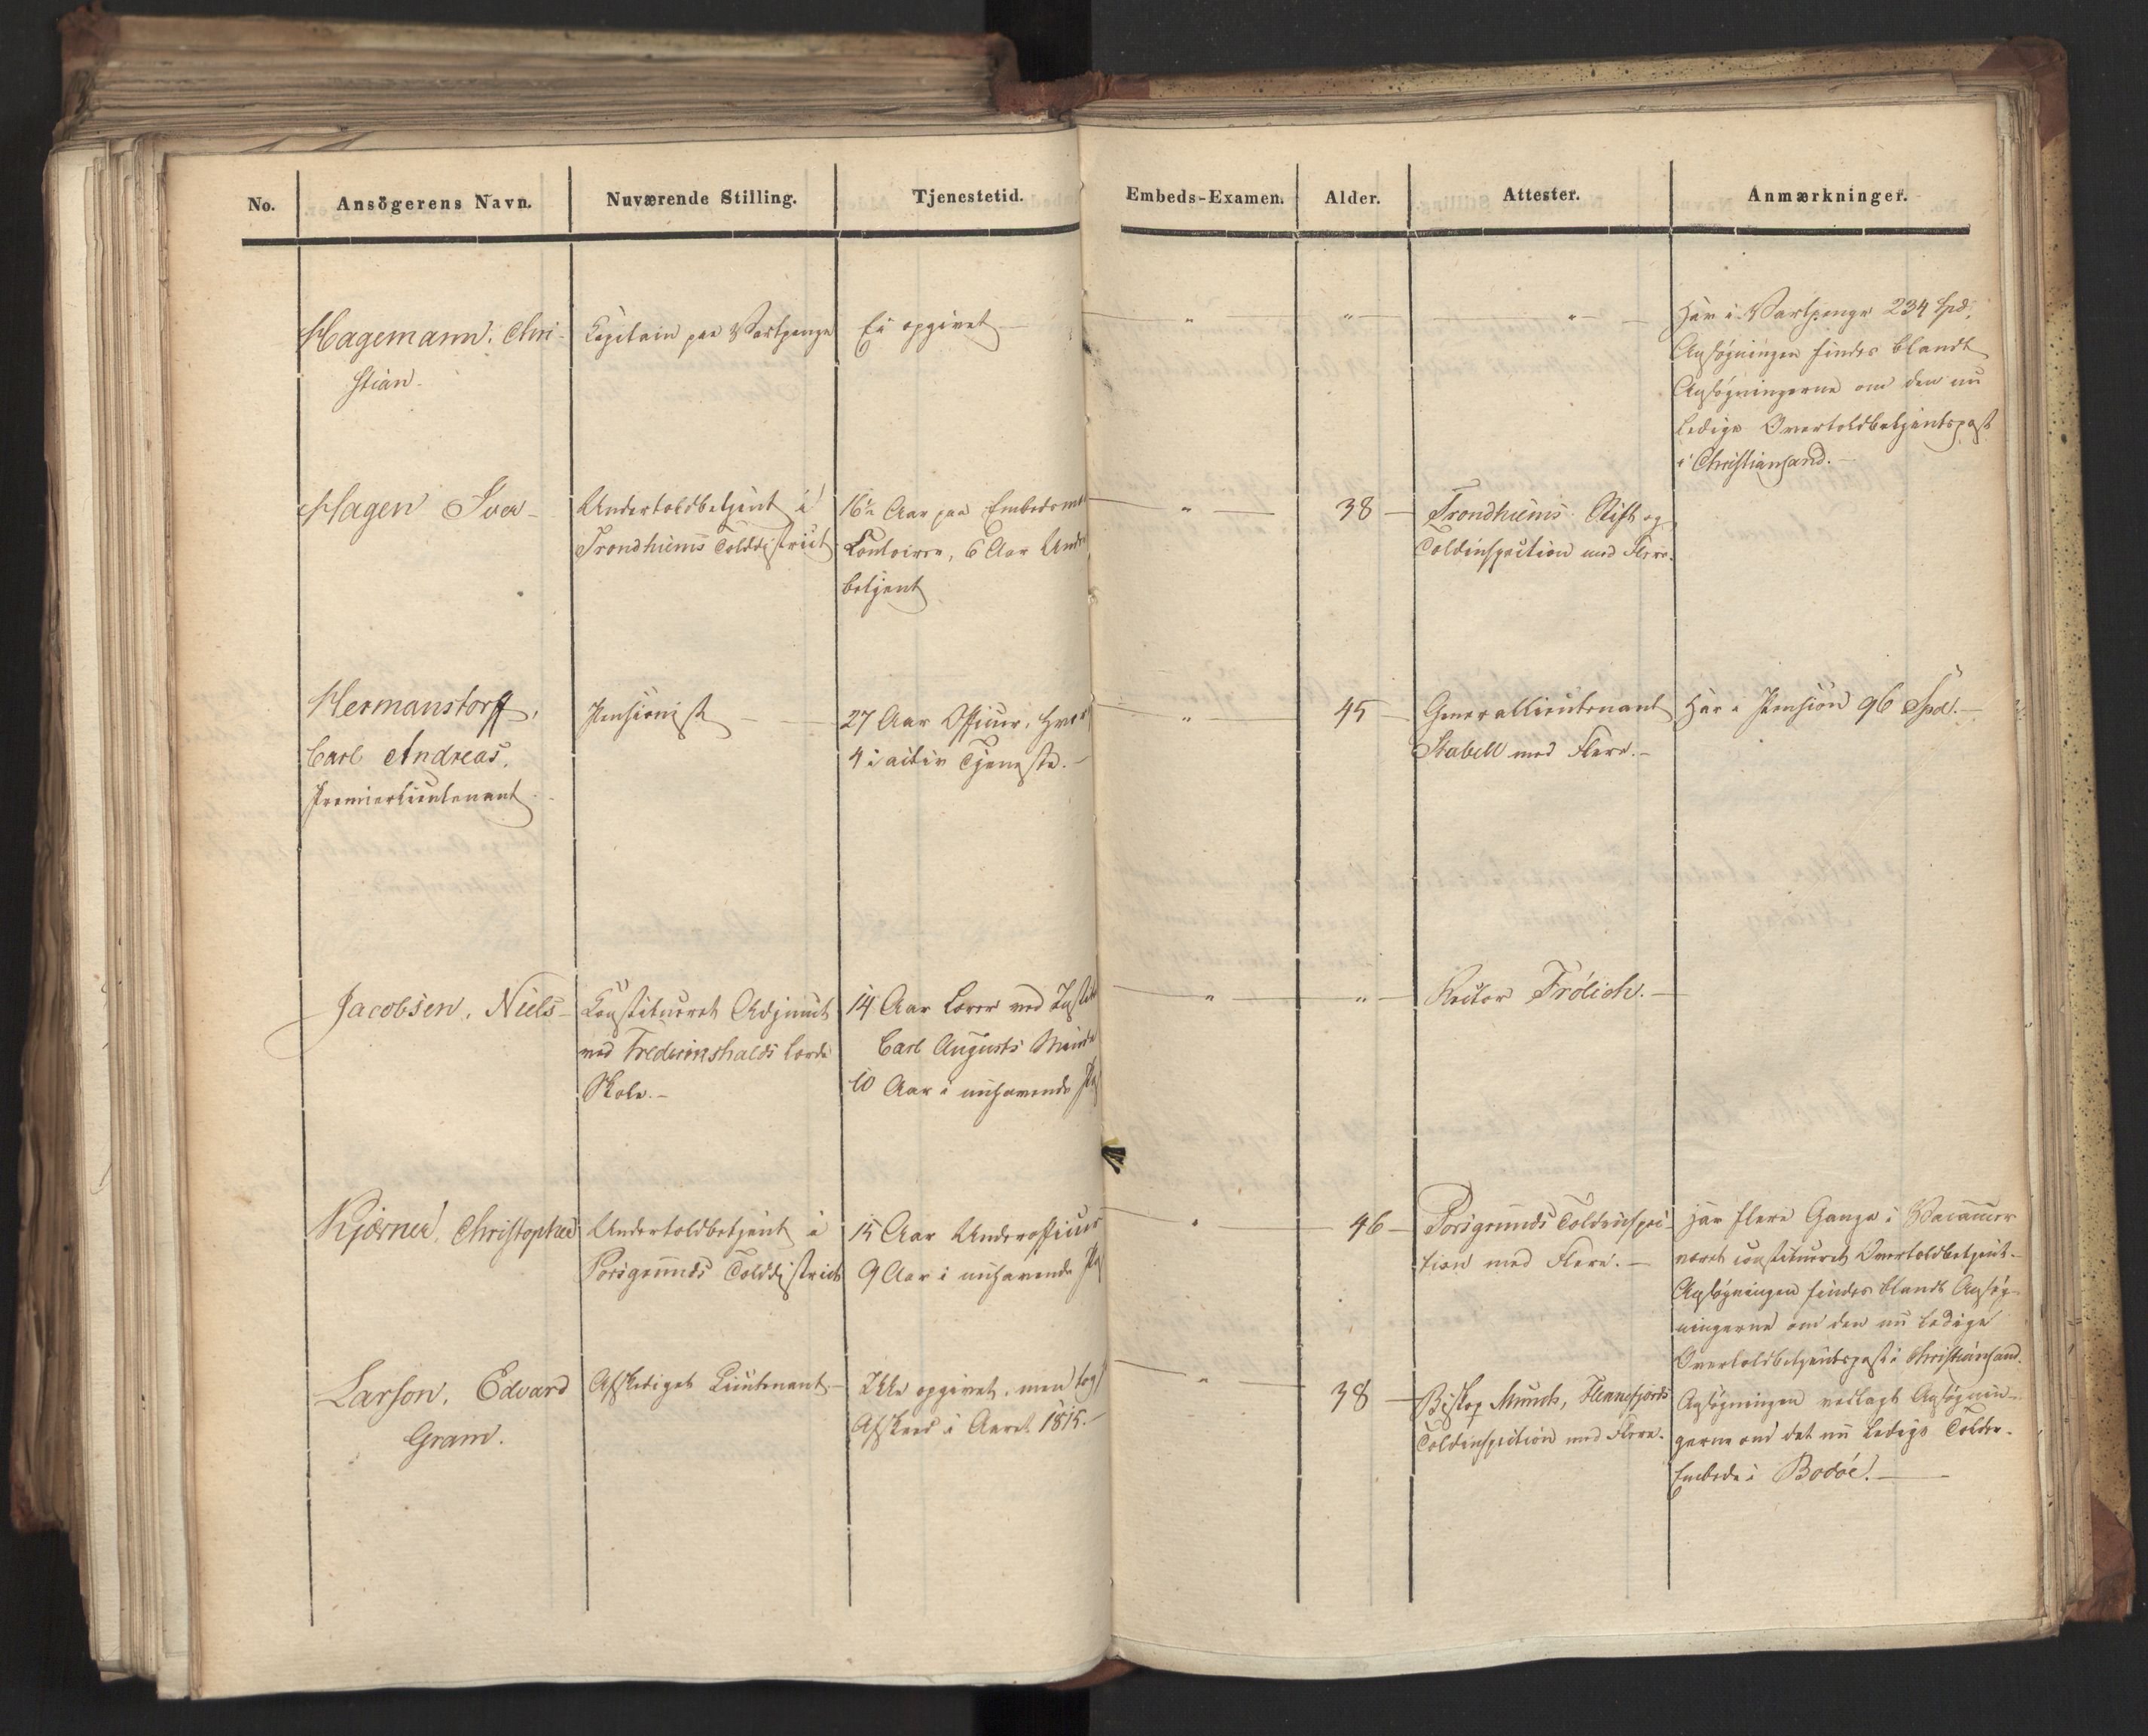 No. Ansögerens Navn. Nuværende Stilling. Tjenestetid. Embeds-Examen. Alder. Attester. Anmærkninger.
Hagemann, Chri-
stian.
Capitain paa Vartpenge
Ei opgivet
"
"
"
Har i Vartpenge 234 Spd.
Ansøgningen findes blandt
Ansøgningerne om den nu
ledige Overtoldbetjentspost
i Christiansand.
Hagen Iver
Undertoldbetjent i
Trondhiems Tolddistrict
16½ Aar paa Embedsmds
Contoirer, 6 Aar Under
betjent
"
38
Trondhiems Stift og
Toldinspection med Flere.
Hermanstorff,
Carl Andreas,
Premierlieutenant
Pensionist
27 Aar Officier, hvoraf
4 i activ Tjeneste.
"
45
Generallieutenant
Stabell med Flere.
Har i Pension 96 Spd.
Jacobsen, Niels
Constitueret Adjunct
ved Fredericshalds lærde
Skole.
14 Aar Lærer ved
Carl Augusts Minde
10 Aar i nuhavende
"
"
Rector Frölich.
Kjørner, Christopher
Undertoldbetjent i
Porsgrunds Tolddistrict
15 Aar Underofficier
9 Aar i nuhavende
"
46
Porsgrunds Toldinspec-
tion med Flere.
Har flere Gange i Vacancer
været constitueret Overtoldbetjent.
Ansøgningen findes blandt Ansøg-
ningerne om den nu ledige
Overtoldbetjentspost i Christiansand.
Larson, Edvard
Gram.
Afskediget Lieutenant
Ikke opgivet, men tog
Afsked i Aaret 1815.
"
38
Biskop Munch, Flennefjords
Toldinspection med Flere.
Ansøgningen vedlagt Ansøgnin-
gerne om det nu ledige Tolder-
Embede i Bodöe.